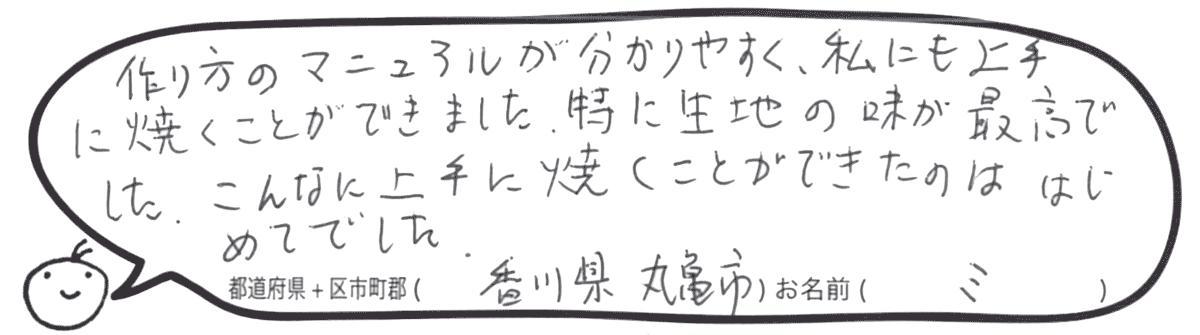 作り方のマニュアルが分かりやすく、私にも上手
に焼くことができました.特に生地の味が最高で
した.こんなに上手に焼くことができたのははじ
めてでした.
都道府県+区市町郡(香川県 丸亀市)お名前(ミ)